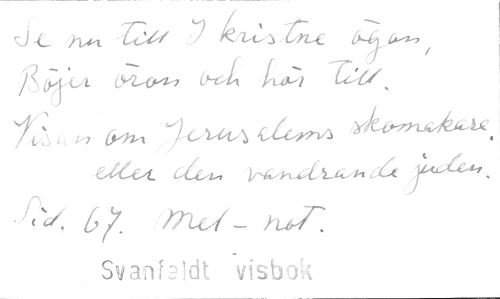 Se nu till I kristne ögon,
Böjer öron och hör till.
Visan om Jerusalems skomakare.
eller den vandrande juden.
Sid. 67. Mel-not.
Svanfeldt visbok